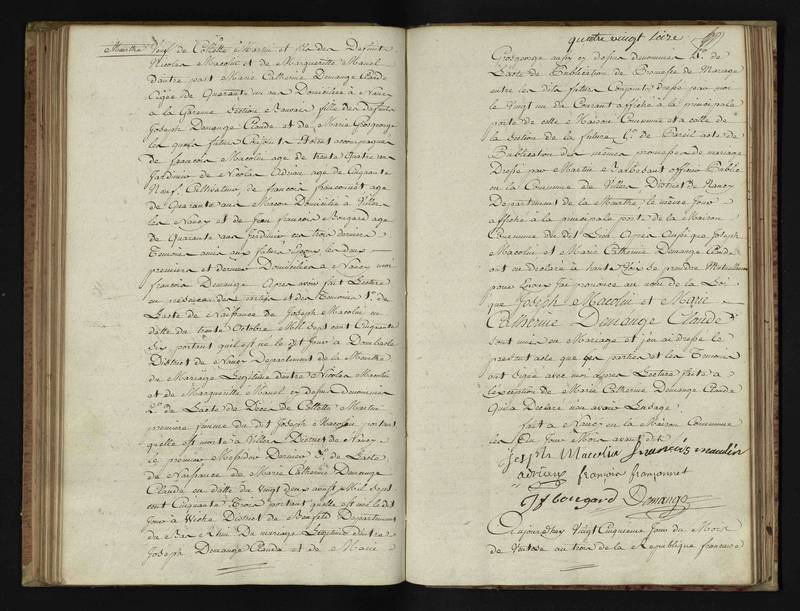 Meurthe Veuf de Collette Martin et fils des Defunts
Nicolas Macolin et de Marguerite Manel
d'autre part Marie Catherine Demange Claude
agée de Quarante un ans Domiciliée à Nancy
a la Garenne Section Fille des defunts
Joseph Demange Claude et de Marie Grosgeorge
les quels futurs Conjoints Etoient accompagnés
de francois Macolin age de trente quatre ans
Jardinier de Nicolas Adrian age de Cinquante
Neuf, Cultivateur, de francois franconnet age
de Quarante ans Macon Domicilié à Villers
les Nancy et de Jean francois Bougard age
de Quarante ans Jardinier ces trois derniers
Temoins amis aux futurs Epoux, les deux
premiers et dernier Domiciliés à Nancy moi
francois Demange Apres avoir fait Lecture
en presence des parties et des Temoins 1.º de
L'acte de Naissance de Joseph Macolin en
datte du trente Octobre Mil Sept cent Cinquante
Six portant qu'il est né le dit Jour à Dombasle
District de Nancy Departement de la Meurthe
du Mariage Legitime d'entre Nicolas Macolin
et de Marguerite Manel cy dessus denommés
2.º de L'acte de Déces de Collette Martin
premiere femme du dit Joseph Macolin portant
quelle est morte à Villers District de Nancy
le premier Messidor Dernier 3.º de L'acte
de Naissance de Marie Catherine Demange
Claude en datte du Vingt deux aoust Mil Sept
cent Cinquante Trois portant quelle est née le dit
Jour à District de Benfeld Departement
du Bas Rhin Du mariage Legitime d'entre
Joseph Demange Claude et de Marie
quatre vingt treize
Grosgeorge aussy cy dessus denommés 4.º de
L'acte de Publication de Promesse de Mariage
entre les dits futurs Conjoints dressé par moi
le Vingt un du Courant affiché a la principale
porte de cette Maison Commune et a celle de
la Section de la future 5.º de Pareil acte de
Publication des mêmes promesse de mariage
Dressé par Martin officier Public
en la Commune de Villers, District de Nancy
Departement de la Meurthe, le même Jour
affiché à la principale porte de la Maison
Commune du dit Lieu Apres Aussi que Joseph
Macolin et Marie Catherine Demange Claude
ont eu declaré à haute Voix Se prendre Mutuellement
pour Epoux J'ai prononcé au nom de la Loi
que Joseph Macolin et Marie
Catherine Demange Claude
sont unis en Mariage et j'en ai dressé le
present acte que les parties et les Temoins
ont Signé avec moi apres Lecture faite a
l'exception de Marie Catherine Demange Claude
qui a Declaré n'en avoir L'usage.
fait a Nancy en la Maison Commune
les An Jour Mois avant dit
Joseph Macolin francois macolin
adrians françois françonnet
Jf bougard Demange
Aujourdhuy Vingt Cinquieme Jour du Mois
de Ventose an trois de la Republique francaise